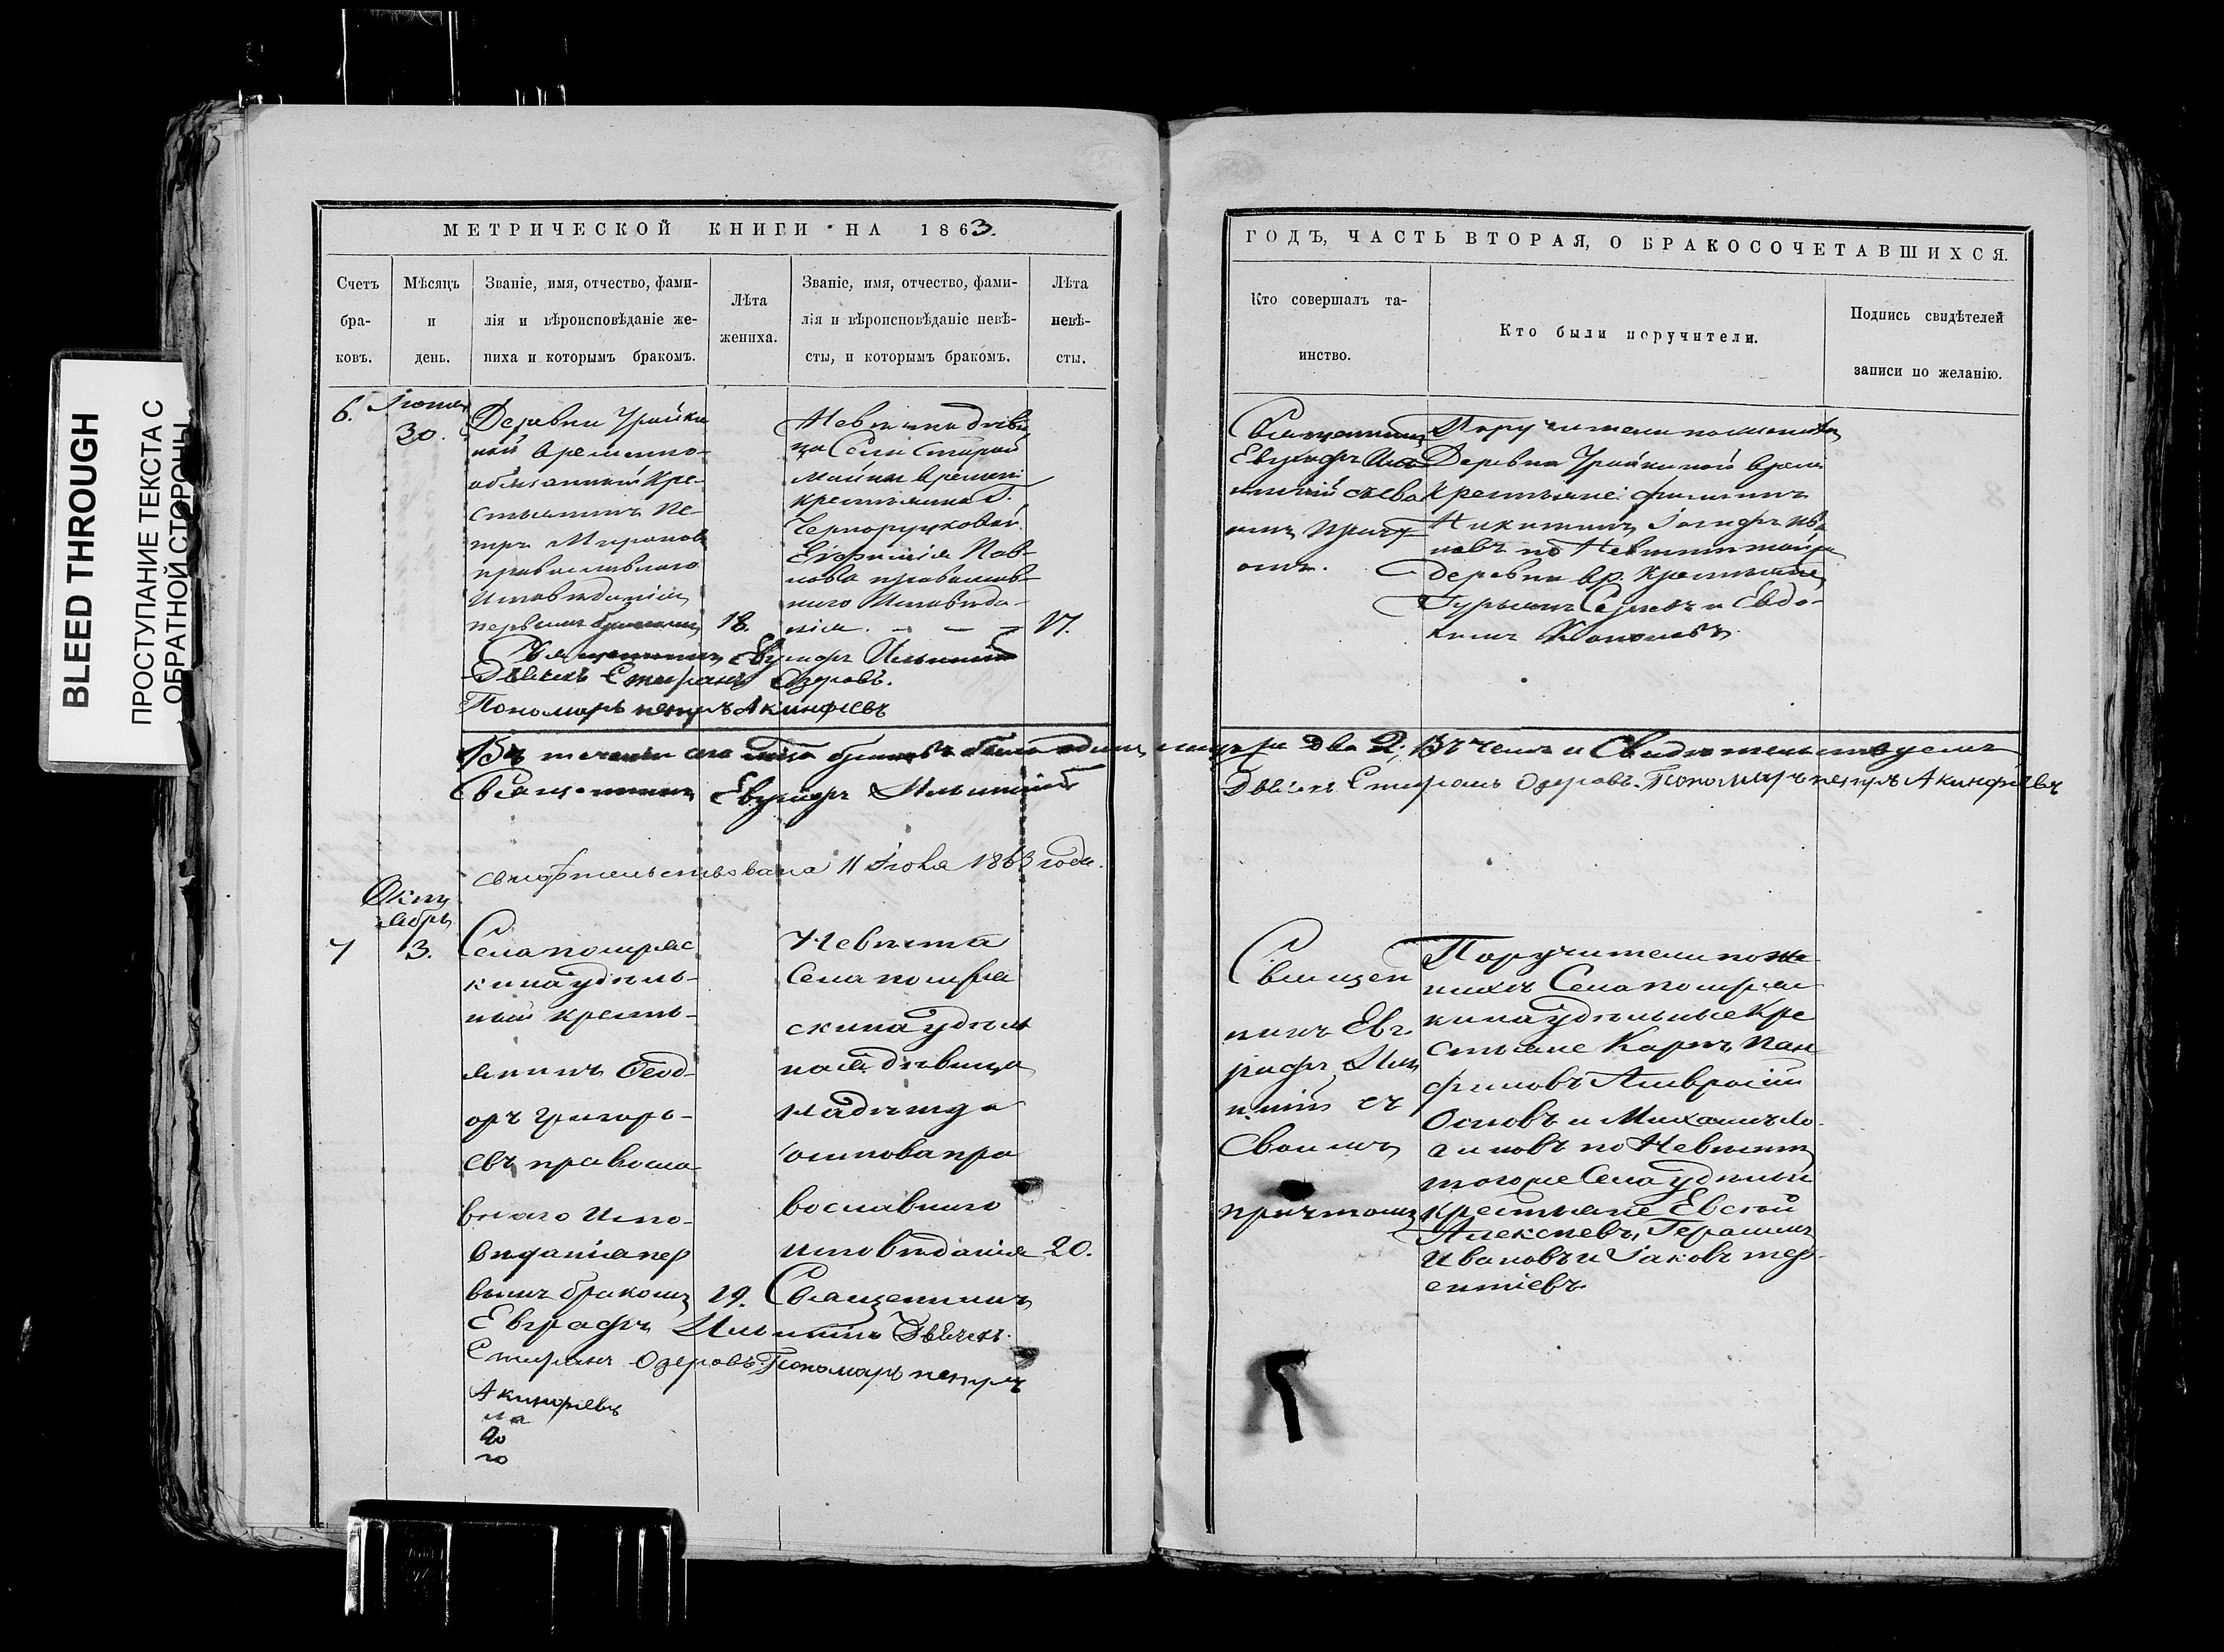 BLEED THROUGH
ПРОСТУПАНИЕ ТЕКСТА С
ОБРАТНОЙ СТОРОНЫ
МЕТРИЧЕСКОЙ КНИГИ НА 1863.
Счетъ бра- ковъ.
Мѣсяцъ и день.
Званіе, имя, отчество, фами-
лія и вѣроисповѣданіе же-
ниха и которымъ бракомъ.
Лѣта
жениха.
Званіе, имя, отчество, фами-
лія и вѣроисповѣданіе невѣ-
сты, и которымъ бракомъ.
Лѣта
невѣ-
сты.
6.
30.
Деревни
ной временно-
обязанный Кре-
стьянинъ Пе-
тръ Мироновъ
православнаго
Исповѣданія
первымъ бракомъ
18.
Невѣста дѣви
ца Села Старой
Майны времен
крестьянина Г.
Евфимія Пав-
лова православ-
наго Исповѣда-
нія.
17.
Священникъ Евграфъ Ильинскій
Дьячекъ Стефанъ Озеровъ.
Пономарь петръ Акинфіевъ
Священникъ Евграфъ Ильинскій
свидѣтельствована 11 Іюля 1863 года.
Окт
ябрь
7
3.
Села помряс
кина удѣль-
ный кресть-
янинъ Ѳеод-
оръ григорь-
евъ правосла-
внаго Испо-
вѣданія пер
вымъ бракомъ
19.
Невѣста
Села помря
скина удѣль
ная дѣвица
Надѣжда
православнаго
исповѣданія
20.
Священникъ
Евграфъ Ильинскій Дьячекъ
Стефанъ Озеровъ. Пономарь петръ
Акинфіевъ
ГОДЪ, ЧАСТЬ ВТОРАЯ, О БРАКОСОЧЕТАВШИХСЯ.
Кто совершалъ та-
инство.
Кто были поручители.
Подпись свидѣтелей
записи по желанію.
Священникъ
Евграфъ Иль
инскій съ сво
имъ причт
омъ.
Поручители по женихѣ
Деревни
крестьяне: филиппъ
Никитинъ, Іосифъ Ива
новъ по Невѣстѣ той же
деревни вр. крестьяне
Гурьянъ Сергѣевъ и Евдо-
кимъ
Дьячекъ Стефанъ Озеровъ. Пономарь петръ Акинфіевъ
Священ
никъ Евг
рафъ Иль
инскій съ
своимъ
причтомъ
Поручители по же-
нихѣ Села помряс
кина удѣльные Кре
стьяне Карпъ Пан
филовъ Амвросій
Осиповъ и Михаилъ Ло-
гиновъ по Невѣстѣ
тогоже Села удѣльн
крестьяне Евсей
Алексѣевъ, Герасимъ
Ивановъ и Іаковъ тер-
ентіевъ.